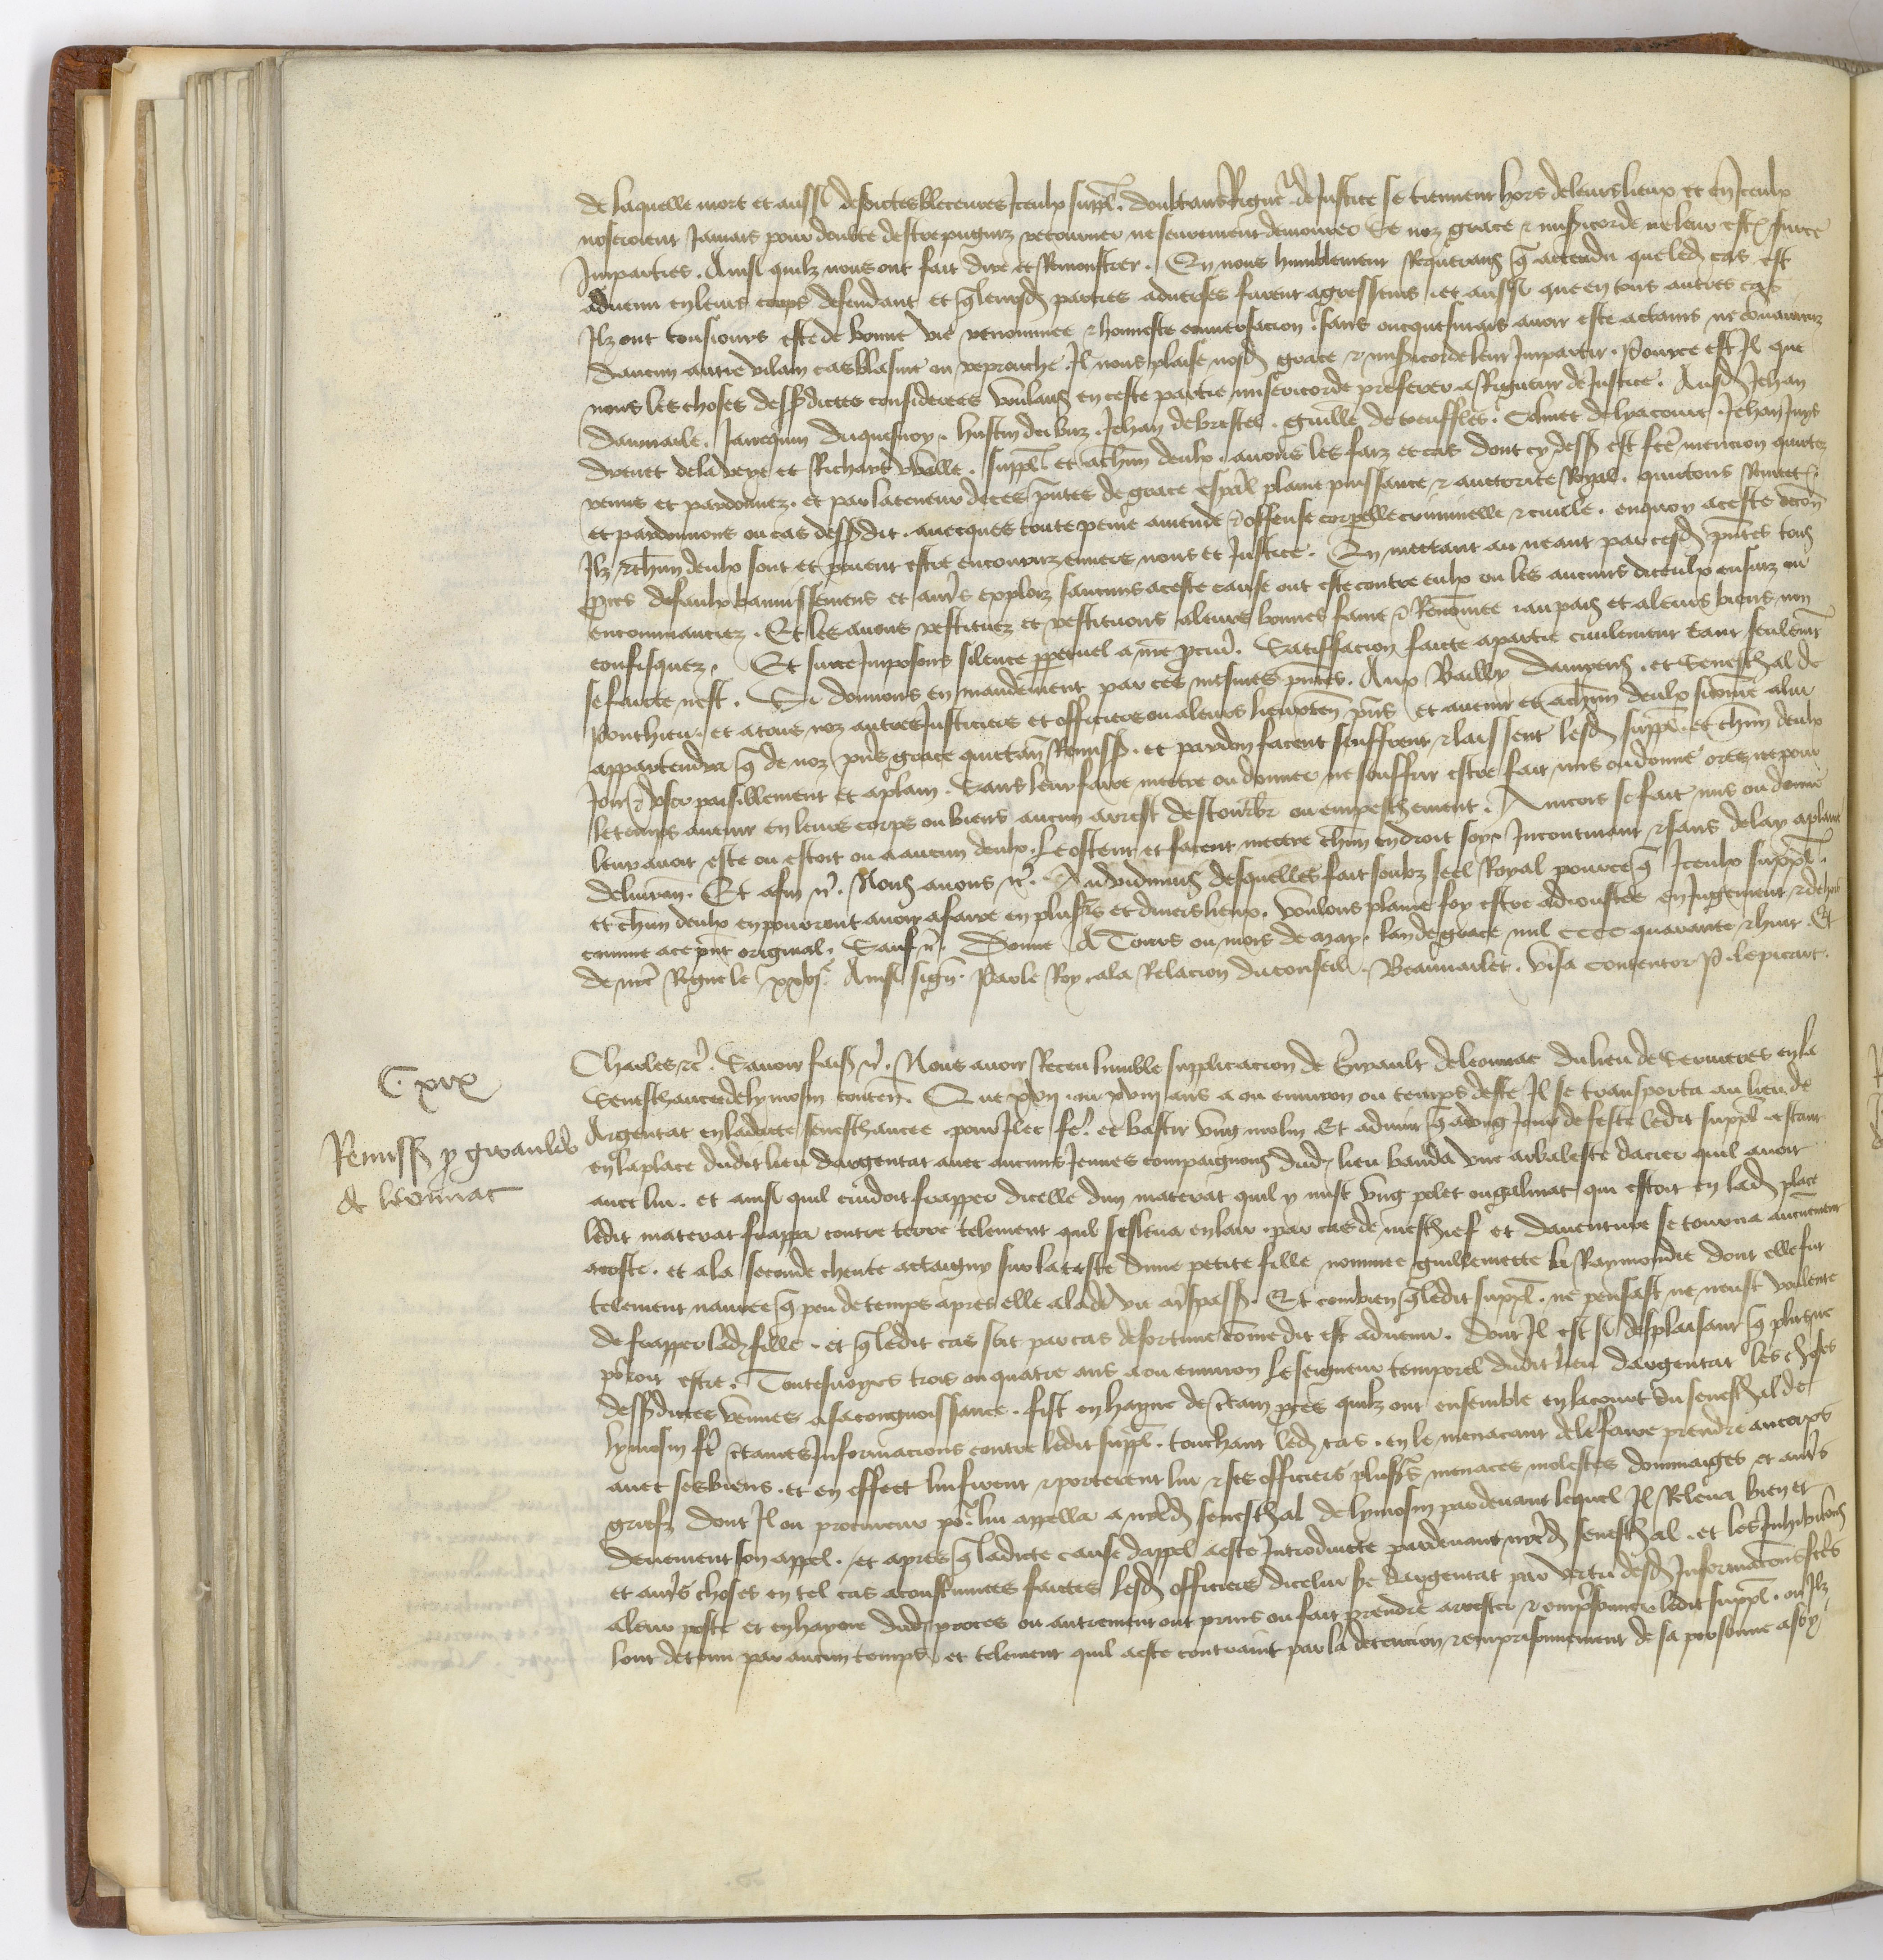 de laquelle mort et aussi desdictes bleceures Iceulx suppl. doubtans Rigueur de Justice se tiennent hors de leurs lieux et en Iceulx
noseroient Jamais pour doubte destre pugniz retourner ne seurement demourer se noz grace & misericorde ne leur est sur ce
Imparties. Ainsi quilz nous ont fait dire et Remonstrer. En nous humblement Requerans q̃ actendu que led cas est
aduenu en leurs corps defendant et q̃ leursd parties aduerses furent agresseurs. et aussi que en tous autres cas
Ilz ont tousiours este de bonne vie renommee & honneste conuersacion. sans oncques mais auoir este actains ne conuaincuz
daucun autre vilain cas blasme ou reprouche. Il nous plaise nosd grace & misericorde leur Impartir. Pource est Il que
nous les choses dessusdictes considerees voulans en ceste partie misericorde preferer a Rigueur de Justice. Ausd Jehan
Daumarle. Jacequin duquesnoy. hustin de buz. Jehan de brestel. guille de torufflles. Colinet delyacourt. Jehan
drenet dela Veye et Richart Vvalle. suppl. et achun deulx. auons les faiz et cas dont cy dess est fce mencion quictez
remis et pardonnez. et par la teneur de ces pntes de grace espal plaine puissance & auctorite Royal. quictons Remect.
et pardonnons ou cas dessdit. auecques toute peine amende & offense corpelle criminelle & ciuile. en quoy a ceste occon
Ilz & chun deulx sont et peuent estre encouruz enuers nous et Justice. En mectant au neant par cesd pntes tous
proces defaulx bannissemens et auts exploiz saucuns a ceste cause ont este contre eulx ou les aucuns diceulx ensuiz ou
encommanciez. Et les auons restituez et restituons a leurs bonnes fame & Renommee au pais et a leurs biens non
confisquez. Et sur ce Imposons silence ppetuel a nre pcur. Satisfacion faicte a partie ciuilement tant seulemt
se faicte nest. Si donnons en mandement par ces mesmes pntes. Aux Bailly damiens. et Seneschal de
Ponthieu. et a tous noz autres Justiciers et officiers ou a leurs lieuxten pns et auenir et achun deulx si comme a lui
appartendra q̃ de noz pns grace quictance Remiss. et pardon facent seuffrent & laissent lesd suppl. et chun deulx
Joir & vser paisiblement et aplain. Sans leur faire mectre ou donner ne souffrir estre fait mis ou donne ores ne pour
le temps auenir en leurs corps ou biens aucun arrest destourbr ou empeschement. Aincois se fait mis ou donne
leur auoit este ou estoit ou a aucun deulx. Le ostent et facent mectre chun endroit soy Incontinant & sans delay a plaine
deliuran. Et afin &c. Nous auons &c. Au vidimus desquelles fait soubz seel Royal pource q̃ Iceulx suppl.
et chun deulx en pourront auoir afaire en pluss et diuers lieux. voulons plaine foy estre adioustee en Jugement & dehors
comme a ce pnt original. Sauf &c. Donne A Tours ou mois de may. lan de grace mil CCCC quarante & huit. Et
de nre Regne le xxvje. Ainsi sign. Par le Roy a la Relacion du conseil. Beauuarlet. visa contentor P. lepicart.

C xix
Remiss p girauldo
de leonnac
Charles &c. Sauoir fais &c. Nous auoir Receu lumble supplicacion de Girault de leonnac du lieu de Seruieres en la
Seneschaucee de lymosin conten. Que xvij. ou xviij ans a ou enuiron ou temps deste Il se transporta au lieu de
Argentat en ladicte seneschaucee pour Ilec fe. et bastir vng molin Et aduint q̃ a vng Jour de feste ledit suppl. estant
en la place dudit lieu dargentat auec aucuns Jeunes compaignons dud lieu banda vne arbaleste dacier quil auoit
auec lui. et ainsi quil cuidoit frapper dicelle dun materat quil y mist vng polet ou galinat qui estoit en lad place
ledit materat frappa contre terre telement quil sesleua en lair. par cas de meschief et dauenture se tourna aucunement
a coste. et a la seconde cheute actaigny sur la teste dune petite fille nommee guillemette la Raymondie dont elle fut
telement nauree q̃ peu de temps apres elle ala de vie a trespass. Et combien q̃ ledit suppl. ne pensast ne neust voulente
de frapper lad fille. et q̃ ledit cas soit par cas de fortune comme dit est aduenu. Dont Il est si desplaisant q̃ plus ne
porroit estre. Toutesuoyes trois ou quatre ans a ou enuiron le seigneur temporel dudit lieu dargentat les choses
dessdictes venues a sa congnoissance. fist en hayne de ctain proces quilz ont ensemble en la court du seneschal de
lymosin fe ctaines Informacions contre ledit suppl. touchant led cas. en le menacant de le faire prendre au corps
auec ses biens. et en effect lui firent & porterent lui & ses officiers pluss menaces molestes dommaiges et auts
griefz dont Il ou procureur po. lui appella a nred seneschal de lymosin pardeuant lequel Il Releua bien et
deuement son appel. et apres q̃ ladicte cause dappel a este Introduicte pardeuant nred seneschal. et les Inhibicons
et auts choses en tel cas acoustumees faictes lesd officiers dicelui sr dargentat par vertu desd Informacons fces
a leur poste et en hayne dud proces ou autrement ont prins ou fait prendre arrester & emprisonner ledit suppl. ou Ilz
lont detenu par aucun temps. et telement quil a este contraint par la detencion & emprisonnement de sa personne a soy